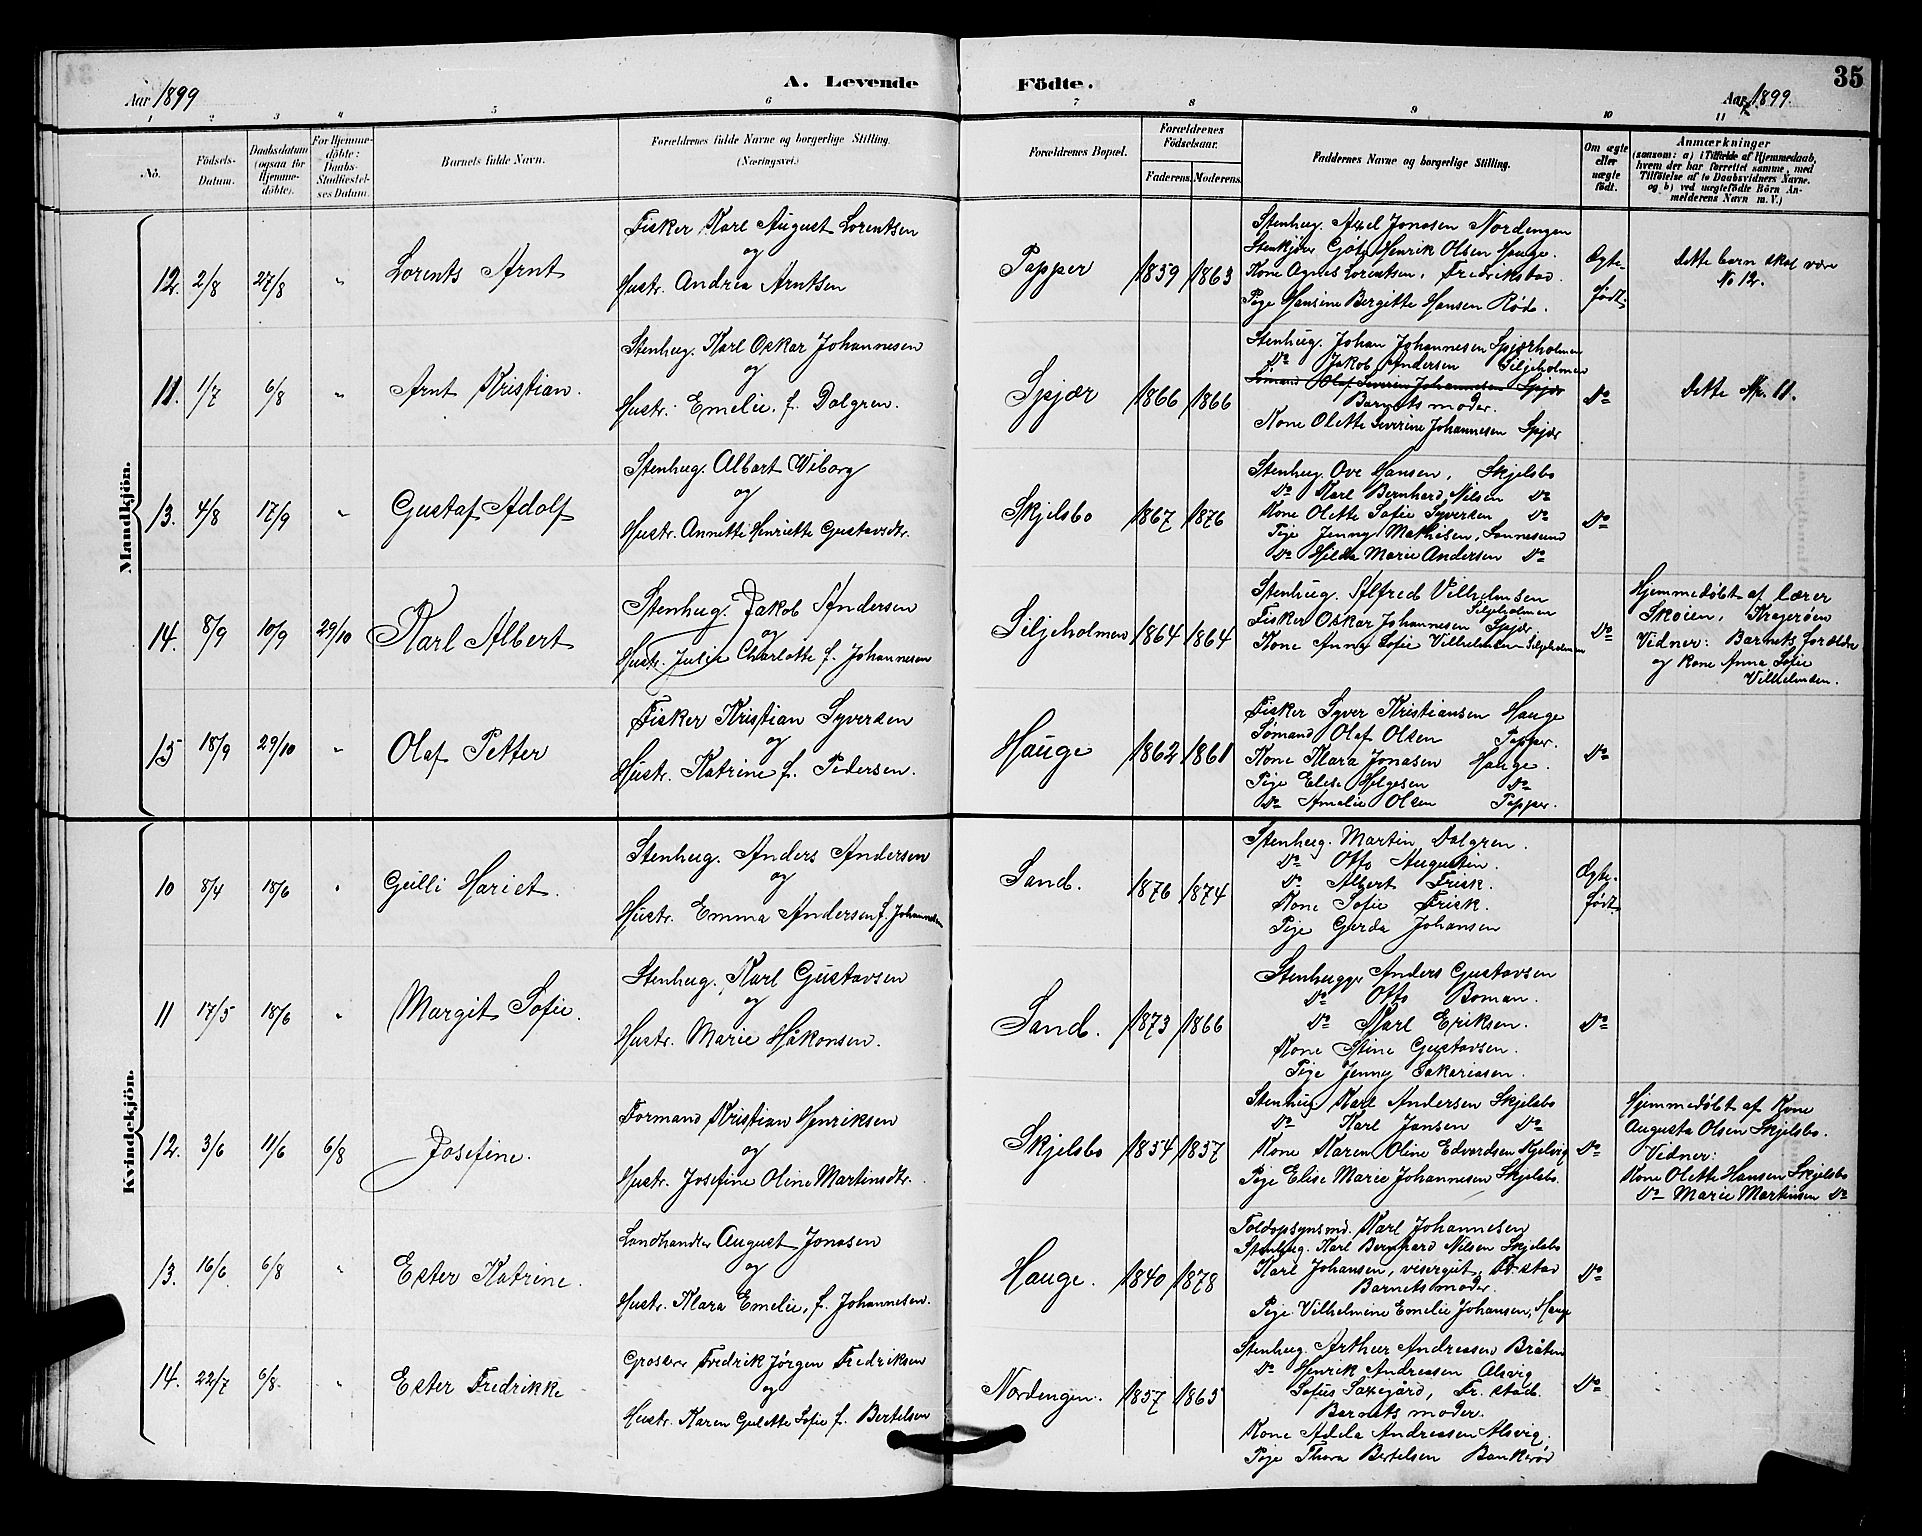 35
Aar 1899
A. Levende
Födte.
Aar 1899.
1 2 3 4 5 6 7 8 9 10 11
No.
Födsels-
Datum.
Daabsdatum
(ogsaa for
Hjemme-
döbte).
For Hjemme-
döbte:
Daabs-
Stadfæstel-
ses Datum.
Barnets fulde Navn.
Forældrenes fulde Navne og borgerlige Stilling.
(Næringsvei.)
Forældrenes Bopæl.
Forældrenes
Födselsaar.
Faderens. Moderens.
Faddernes Navne og borgerlige Stilling.
Om ægte
eller
uægte
födt.
Anmærkninger
(saasom: a) i Tilfælde af Hjemmedaab,
hvem der har forrettet samme, med
Tilföielse af to Daabsvidners Navne.
og b) ved uægtefödte Börn An-
melderens Navn m. V.)
Mandkjön.
12. 2/8 27/8 "
Lorents Arnt
Fisker Karl August Lorentsen
og
Hustr. Andrea Arntsen
Papper
1859 1863
Stenhug. Axel Jonasen Nordengen
Stenkjører Henrik Olsen Hauge.
Kone Agnes Lorentsen, Fredrikstad.
Pige Hansine Bergitte Hansen Röd.
Ægte-
født.
Dette barn skal være
No 12.
11. 1/7 6/8 "
Arnt Kristian.
Stenhug. Karl Oskar Johannesen
og
Hustr. Emelie, f. Dalgren.
Spjær
1866 1866
Stenhug. Johan Johannesen Spjærholmen
Do Jakob Andersen Siljeholmen
Sømand Olaf Severin Johannesen Spjær
Barnets moder.
Kone Olette Severine Johannesen Spjær
Do
Dette Nr. 11.
13. 4/8 17/9 "
Gustaf Adolf
Stenhug. Albert Wiborg
og
Hustr. Annette Henriette Gustavsdtr.
Skjelsbo
1867 1876
Stenhug. Ove Hansen, Skjelsbo
Do Karl Bernhard Nilsen Do
Kone Olette Sofie Syversen Do
Pige Jenny Mathisen,
Do Hilda Marie Andersen Do
Do
14. 8/9 10/9 29/10
Karl Albert
Stenhug. Jakob Andersen
og
Hustr. Julie Charlotte f. Johannesen
Siljeholmen
1864 1864
Stenhug. Alfred Vilhelmsen
Siljeholmen
Fisker Oskar Johannesen Spjær
Kone Anna Sofie Vilhelmsen Siljeholmen
Do
Hjemmedøbt af lærer
Skøien, Kragerøen
Vidner: Barnets forældre
og kone Anna Sofie
Vilhelmsen.
15 18/9 29/10 "
Olaf Petter
Fisker Kristian Syversen
og
Hustr. Katrine f. Pedersen.
Hauge
1862 1861
Fisker Syver Kristiansen Hauge
Sømand Olaf Olsen Papper.
Kone Klara Jonasen Hauge.
Pige Elise Helgesen Do
Do Amalie Olsen Papper.
Do
Kvindekjön.
10 8/4 18/6 "
Gulli Hariet.
Stenhug. Anders Andersen
og
Hustr. Emma Andersen f. Johannesen
Sand.
1876 1874
Stenhug. Martin Dalgren.
Do Otto Augustin.
Do Albert Frisk.
Kone Sofie Frisk.
Pige Gerda Johansen
Ægte-
født
11 17/5 18/6 "
Margit Sofie.
Stenhug. Karl Gustavsen
og
Hustr. Marie Håkonsen.
Sand.
1873 1866
Stenhugger Anders Gustavsen
Do Otto Boman.
Do Karl Eriksen.
Kone Stine Gustavsen.
Pige Jenny Sakariasen.
Do
12. 3/6 11/6 6/8
Josefine.
Formand Kristian Henriksen
og
Hustr. Josefine Oline Martinsdtr.
Skjelsbo
1854 1857
Stenhug Karl Andersen Skjelsbo
Do Karl Jansen Do
Kone Karen Oline Edvardsen Kjelvig
Pige Elise Marie Johannesen Skjelsbo.
Do
Hjemmedøbt af Kone
Augusta Olsen Skjelsbo.
Vidner:
Kone Olette Hansen Skjelsbo
Do Marie Martinsen Do
13. 16/6 6/8 "
Ester Katrine.
Landhandler August Jonasen
og
Hustr. Klara Emelie, f. Johannesen.
Hauge.
1840 1878
Toldopsynsmd. Karl Johannesen
Stenhug. Karl Bernhard Nilsen Skjelsbo
Karl Johansen, visergut, Fr.stad
Barnets moder.
Pige Vilhelmine Emelie Johansen, Hauge
Do
14. 22/7 6/8. "
Ester Fredrikke
Grosserer Fredrik Jørgen Fredriksen
og
Hustr. Karen Gulette Sofie f. Bertelsen
Nordengen.
1857 1865
Stenhug. Arthur Andreasen Bråten
Do Henrik Andreasen Alsvig
Sofus Saxegård, Fr.stad.
Barnets moder.
Kone Adela Andreasen Alsvig.
Pige Thora Bertelsen Bankerød
Do